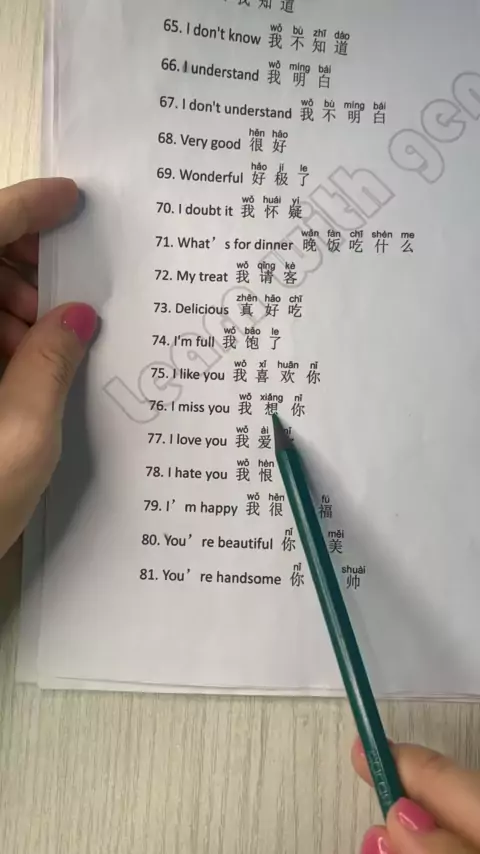 知 道
wǒ bù zhī dào
65. I don't know 我 不 知 道
wǒ míng bái
66. I understand 我 明 白
wǒ bù míng bái
67. I don't understand 我 不 明 白
hěn hǎo
68. Very good 很 好
hǎo jí le
69. Wonderful 好 极 了
wǒ huái yí
70. I doubt it 我 怀 疑
wǎn fàn chī shén me
71. What's for dinner 晚 饭 吃 什 么
wǒ qǐng kè
72. My treat 我 请 客
zhēn hǎo chī
73. Delicious 真 好 吃
wǒ bǎo le
74. I'm full 我 饱 了
wǒ xǐ huān nǐ
75. I like you 我 喜 欢 你
wǒ xiǎng nǐ
76. I miss you 我 想 你
wǒ ài nǐ
77. I love you 我 爱
wǒ hèn
78. I hate you 我 恨
wǒ hěn fú
79. I'm happy 我 很 福
nǐ měi
80. You're beautiful 你 美
nǐ shuài
81. You're handsome 你 帅
learn with